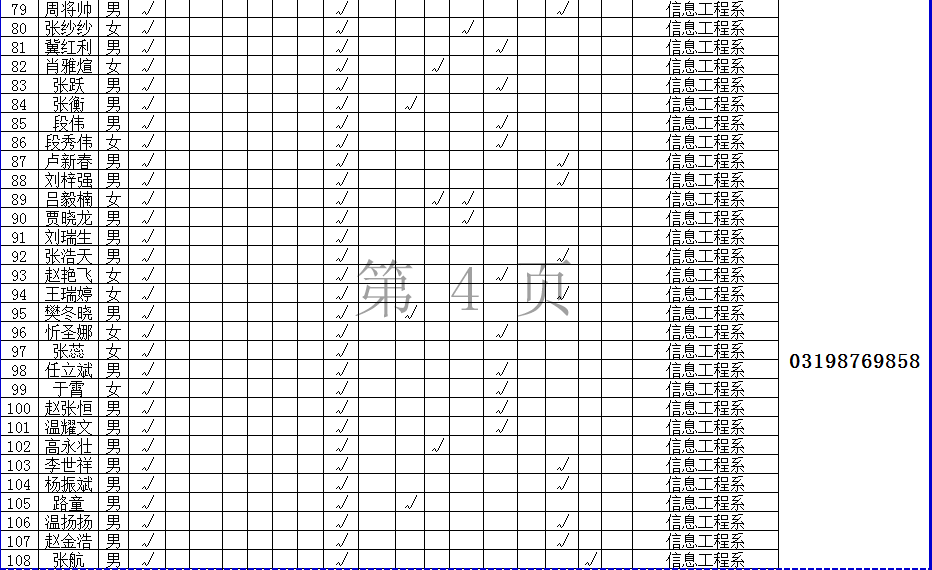 79 周将帅 男 √ √ √ 信息工程系
80 张纱纱 女 √ √ √ 信息工程系
81 冀红利 男 √ √ √ 信息工程系
82 肖雅煊 女 √ √ √ 信息工程系
83 张跃 男 √ √ √ 信息工程系
84 张衡 男 √ √ √ 信息工程系
85 段伟 男 √ √ √ 信息工程系
86 段秀伟 女 √ √ √ 信息工程系
87 卢新春 男 √ √ √ 信息工程系
88 刘梓强 男 √ √ √ 信息工程系
89 吕毅楠 女 √ √ √ √ 信息工程系
90 贾晓龙 男 √ √ √ 信息工程系
91 刘瑞生 男 √ √ 信息工程系
92 张浩天 男 √ √ √ 信息工程系
93 赵艳飞 女 √ √ √ 信息工程系
第 4 页
94 王瑞婷 女 √ √ √ 信息工程系
95 樊冬晓 男 √ √ √ 信息工程系
96 忻圣娜 女 √ √ √ 信息工程系
97 张蕊 女 √ √ 信息工程系
03198769858
98 任立斌 男 √ √ √ 信息工程系
99 于霄 女 √ √ √ 信息工程系
100 赵张恒 男 √ √ √ 信息工程系
101 温耀文 男 √ √ √ 信息工程系
102 高永壮 男 √ √ √ 信息工程系
103 李世祥 男 √ √ √ 信息工程系
104 杨振斌 男 √ √ √ 信息工程系
105 路童 男 √ √ √ 信息工程系
106 温扬扬 男 √ √ √ 信息工程系
107 赵金浩 男 √ √ √ 信息工程系
108 张航 男 √ √ √ 信息工程系